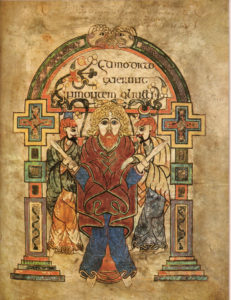 Et ymno dicto
exierunt
in montem oliueti